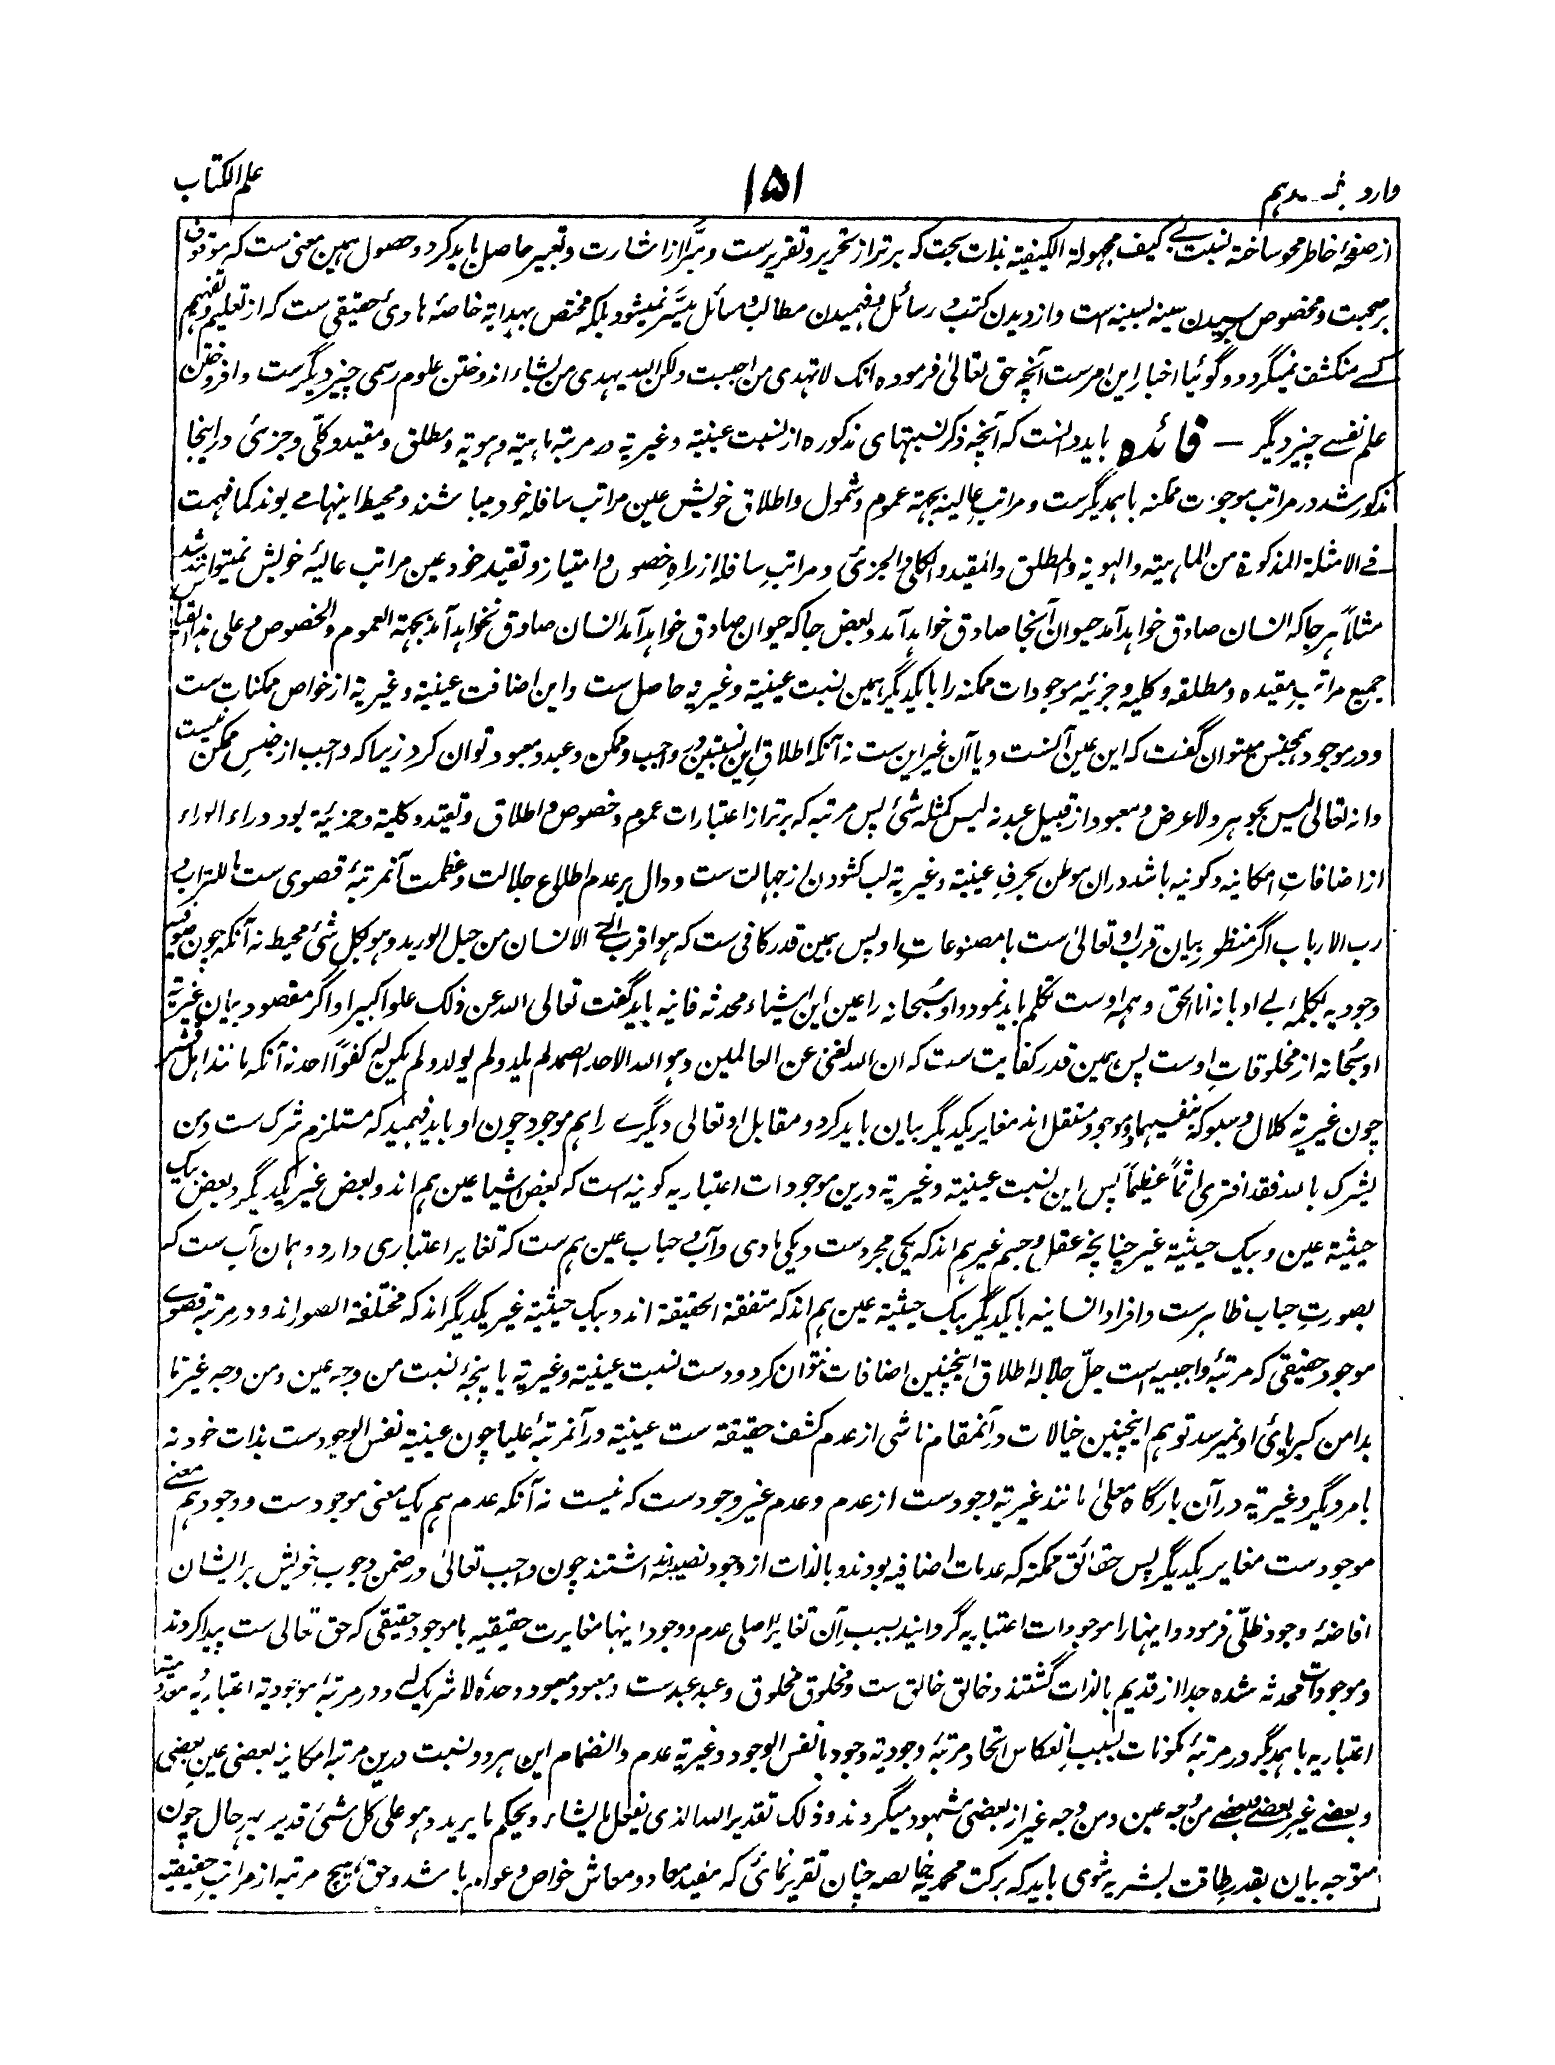 وارد ‌‌‌‌دہم ۱۵۱ علم الکتاب
از صفحۂ خاطر محو ساخته نسبت بے کیف مجهولة الکیفیته بذات بحت که برتر از تحریر و تقریرست و مبرّا از اشارت و تعبیر حاصل باید کرد و حصول ہمین معنی ست که موقوف
بر صحبت و مخصوص رسیدن سینه بسینه است و از دیدن کتب و رسائل و فہمیدن مطالب و مسائل میسّر نمیشود بلکه مختص بہدایة خاصۂ ہادئ حقیقی ست که از تعلیم و تفہیم
کسے منکشف نمیگردد و گوئیا اخبار این امرست آنچه حق تعالیٰ فرموده انک لا تهدی من احببت ولکن الله یهدی من یشاء اندوختن علوم رسمی چیز دیگرست و افروختن
علم نفسے چیز دیگر — فائده باید دانست که آنچه ذکر نسبتهای مذکوره از نسبت عینیة و غیریة در مرتبه ماہیة و ہویة و مطلق و مقید و کلّی و جزئی در اینجا
مذکور شد در مراتب موجودات ممکنه با ہمدیگرست و مراتب عالیه بجهة عموم و شمول و اطلاق خویش عین مراتب سافله خود میباشند و محیط اینها مے بوند کما فهمت
فے الامثلة المذکورة من الماہیة والہویة والمطلق والمقید والکلی والجزئی و مراتب سافله از راه خصوص و امتیاز و تقید خود عین مراتب عالیۂ خویش نمیتوانند شد
مثلاً ہر جا که انسان صادق خواہد آمد حیوان آنجا صادق خواہد آمد و بعض جا که حیوان صادق خواہد آمد انسان صادق نخواہد آمد بجهة العموم والخصوص و علی ہذا القیاس
جمیع مراتب مقیده و مطلقه و کلیه و جزئیه موجودات ممکنه را با یکدیگر ہمین نسبت عینیة و غیریة حاصل ست و این اضافت عینیة و غیریة از خواص ممکنات ست
و در موجود ہمجنس میتوان گفت که این عین آنست و یا آن غیر این ست نه آنکه اطلاق این نسبتین در واجب و ممکن و عبد و معبود توان کرد زیرا که واجب از جنس ممکن نیست
و انه تعالیٰ لیس بجوہر و لا عرض و معبود از قبیل عبد نه لیس کمثله شئ پس مرتبه که برتر از اعتبارات عموم و خصوص و اطلاق و تقید و کلیة و جزئیة بود وراء الوراء
از اضافات امکانیه و کونیه باشد دران موطن بحرف عینیة و غیریة لب کشودن از جہالت ست و دال بر عدم اطلاع جلالت و عظمت آنمرتبۂ قصوی ست ما للتراب و
رب الارباب اگر منظور بیان قرب او تعالیٰ ست با مصنوعات او پس ہمین قدر کافی ست که ہو اقرب الی الانسان من حبل الورید و ہو بکل شئ محیط نه آنکه چون صوفیه
وجودیه بکلمۂ بے ادبانه انا الحق و ہمه اوست تکلم باید نمود و او سُبحانه را عین این اشیاء محدثه فانیه باید گفت تعالی الله عن ذلک علوا کبیرا و اگر مقصود بیان غیریة
او سبحانه از مخلوقات اوست پس ہمین قدر کفایت ست که ان الله لغنی عن العالمین و ہو الله الاحد الصمد لم یلد و لم یولد و لم یکن له کفواً احد نه آنکه مانند اہل قشر
چون غیریة کلال و سبوکه بنفسیهما و بوجود مستقل اند مغایر یکدیگر بیان باید کرد و مقابل او تعالی دیگرے را ہم موجود چون او باید فہمید که مستلزم شرک ست و من
یشرک بالله فقد افتری اثماً عظیماً پس این نسبت عینیة و غیریة درین موجودات اعتباریه کونیه است که بعض اشیا عین ہم اند و بعض غیر یکدیگر و بعض بیک
حیثیة عین و بیک حیثیة غیر چنانچه عقل و جسم غیر ہم اند که یکی مجردست و یکی مادی و آب و حباب عین ہم ست که تغایر اعتباری دارد و ہمان آب ست که
بصورت حباب ظاہرست و افراد انسانیه با یکدیگر بیک حیثیة عین ہم اند که متفقة الحقیقة اند و بیک حیثیة غیر یکدیگر اند که مختلفة الصور اند و در مرتبه قصوے
موجود حقیقی که مرتبۂ واجبیه است جلّ جلاله اطلاق اینچنین اضافات نتوان کرد و دست نسبت عینیة و غیریة با پنجۂ نسبت من وجه عین و من وجه غیر تا
بدامن کبریائی او نمیرسد توہم اینچنین خیالات در آنمقام ناشی از عدم کشف حقیقة ست عینیة در آنمرتبۂ علیا چون عینیة نفس الوجودست بذات خود نه
با مر دیگر و غیریة در آن بارگاه معلیٰ مانند غیریة وجودست از عدم و عدم غیر وجودست که نیست نه آنکه عدم ہم یک معنی موجودست و وجود ہم معنے
موجودست مغایر یکدیگر پس حقائق ممکنه که عدمات اضافیه بودند و بالذات از وجود نصیبه نداشتند چون واجب تعالیٰ در ضمن وجوب خویش برایشان
افاضۂ وجود ظلّی فرمود و اینہا را موجودات اعتباریه گردانید بسبب آن تغایر اصلی عدم و وجود اینها مغایرت حقیقیه با موجود حقیقی که حق تعالی ست پیدا کردند
و موجودات محدثه شده جدا از قدیم بالذات گشتند و خالق خالق ست و مخلوق مخلوق و عبد عبدست و معبود معبود وحدهٗ لا شریک له و در مرتبۂ موجودیة اعتباریه
اعتباریه با ہمدیگر در مرتبۂ مکونات بسبب انعکاس اتحاد مرتبۂ وجودیة وجود با نفس الوجود و غیریة عدم و انضمام این ہر دو نسبت درین مرتبه امکانیه بعضی عین بعضی
و بعضے غیر بعضے و بعضے من وجه عین و من وجه غیر از بعضی مشہود میگردند و ذلک تقدیر الله الذی یفعل ما یشاء و یحکم ما یرید و ہو علی کل شئ قدیر بہر حال چون
متوجه بیان بقدر طاقت بشریه شوی باید که ببرکت محمدیۂ خالصه چنان تقریر نمائی که مفید معاد و معاش خواص و عوام باشد و حق ہیچ مرتبه از مراتب حقیقیه